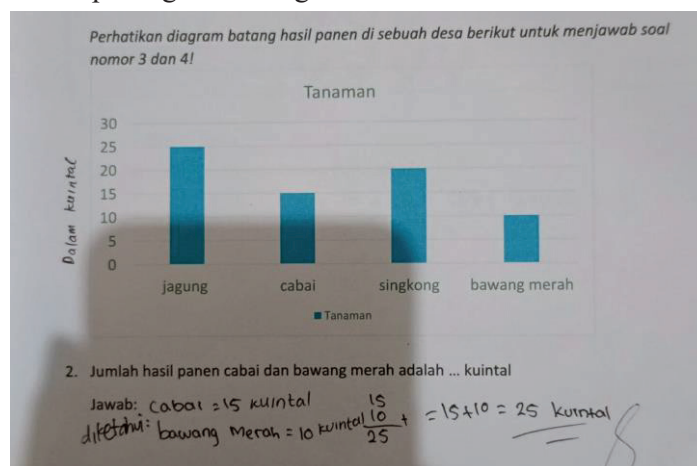 Perhatikan diagram batang hasil panen di sebuah desa berikut untuk menjawab soal
nomor 3 dan 4!
Tanaman
Dalam kuintal
30
25
20
15
10
5
0
jagung cabai singkong bawang merah
Tanaman
2. Jumlah hasil panen cabai dan bawang merah adalah ... kuintal
Jawab: cabai = 15 kuintal
diketahui: bawang merah = 10 kuintal
15
10 +
25
= 15 + 10 = 25 kuintal